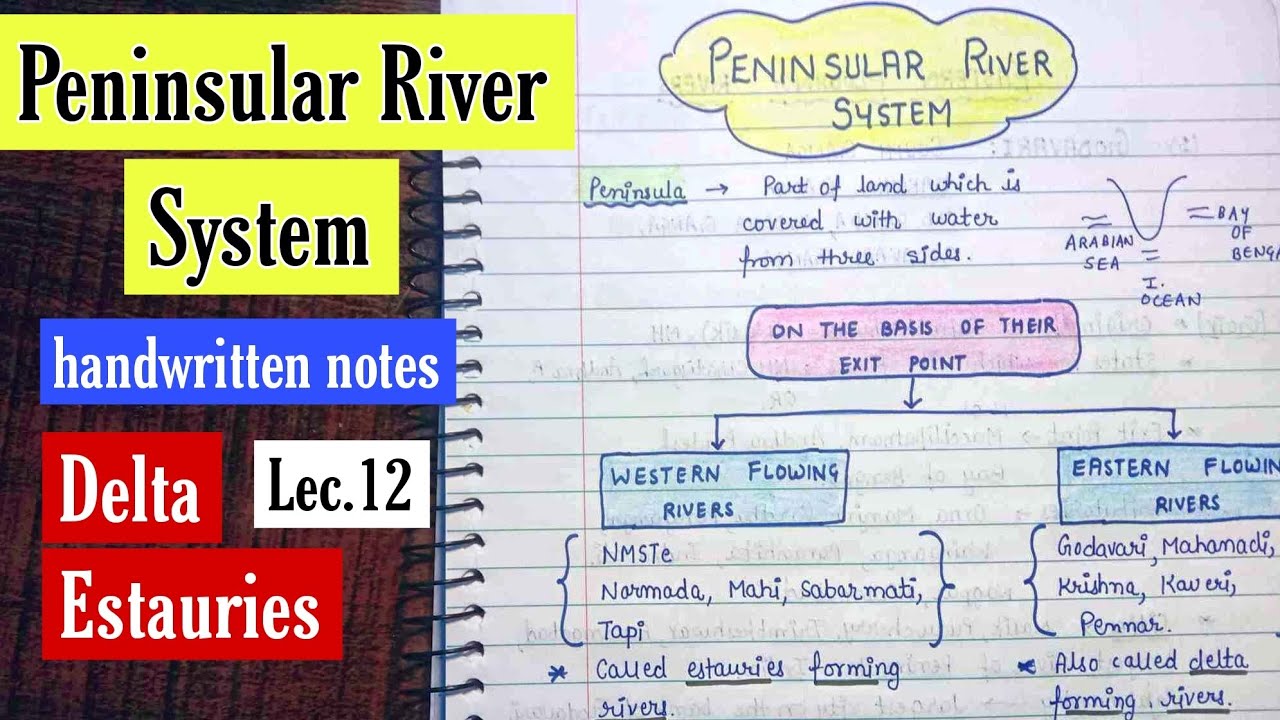 Peninsular River
System
handwritten notes
Delta
Lec.12
Estauries
PENINSULAR RIVER
SYSTEM
Peninsula → Part of land which is
covered with water
from three sides.
= ARABIAN
SEA
= BAY
OF
BENGA
=
I.
OCEAN
ON THE BASIS OF THEIR
EXIT POINT
WESTERN FLOWING
RIVERS
NMSTe
Narmada, Mahi, Sabarmati,
Tapi
* Called estauries forming
rivers.
EASTERN FLOWIN
RIVERS
Godavari, Mahanadi,
Krishna, Kaveri,
Pennar.
* Also called delta
forming rivers.